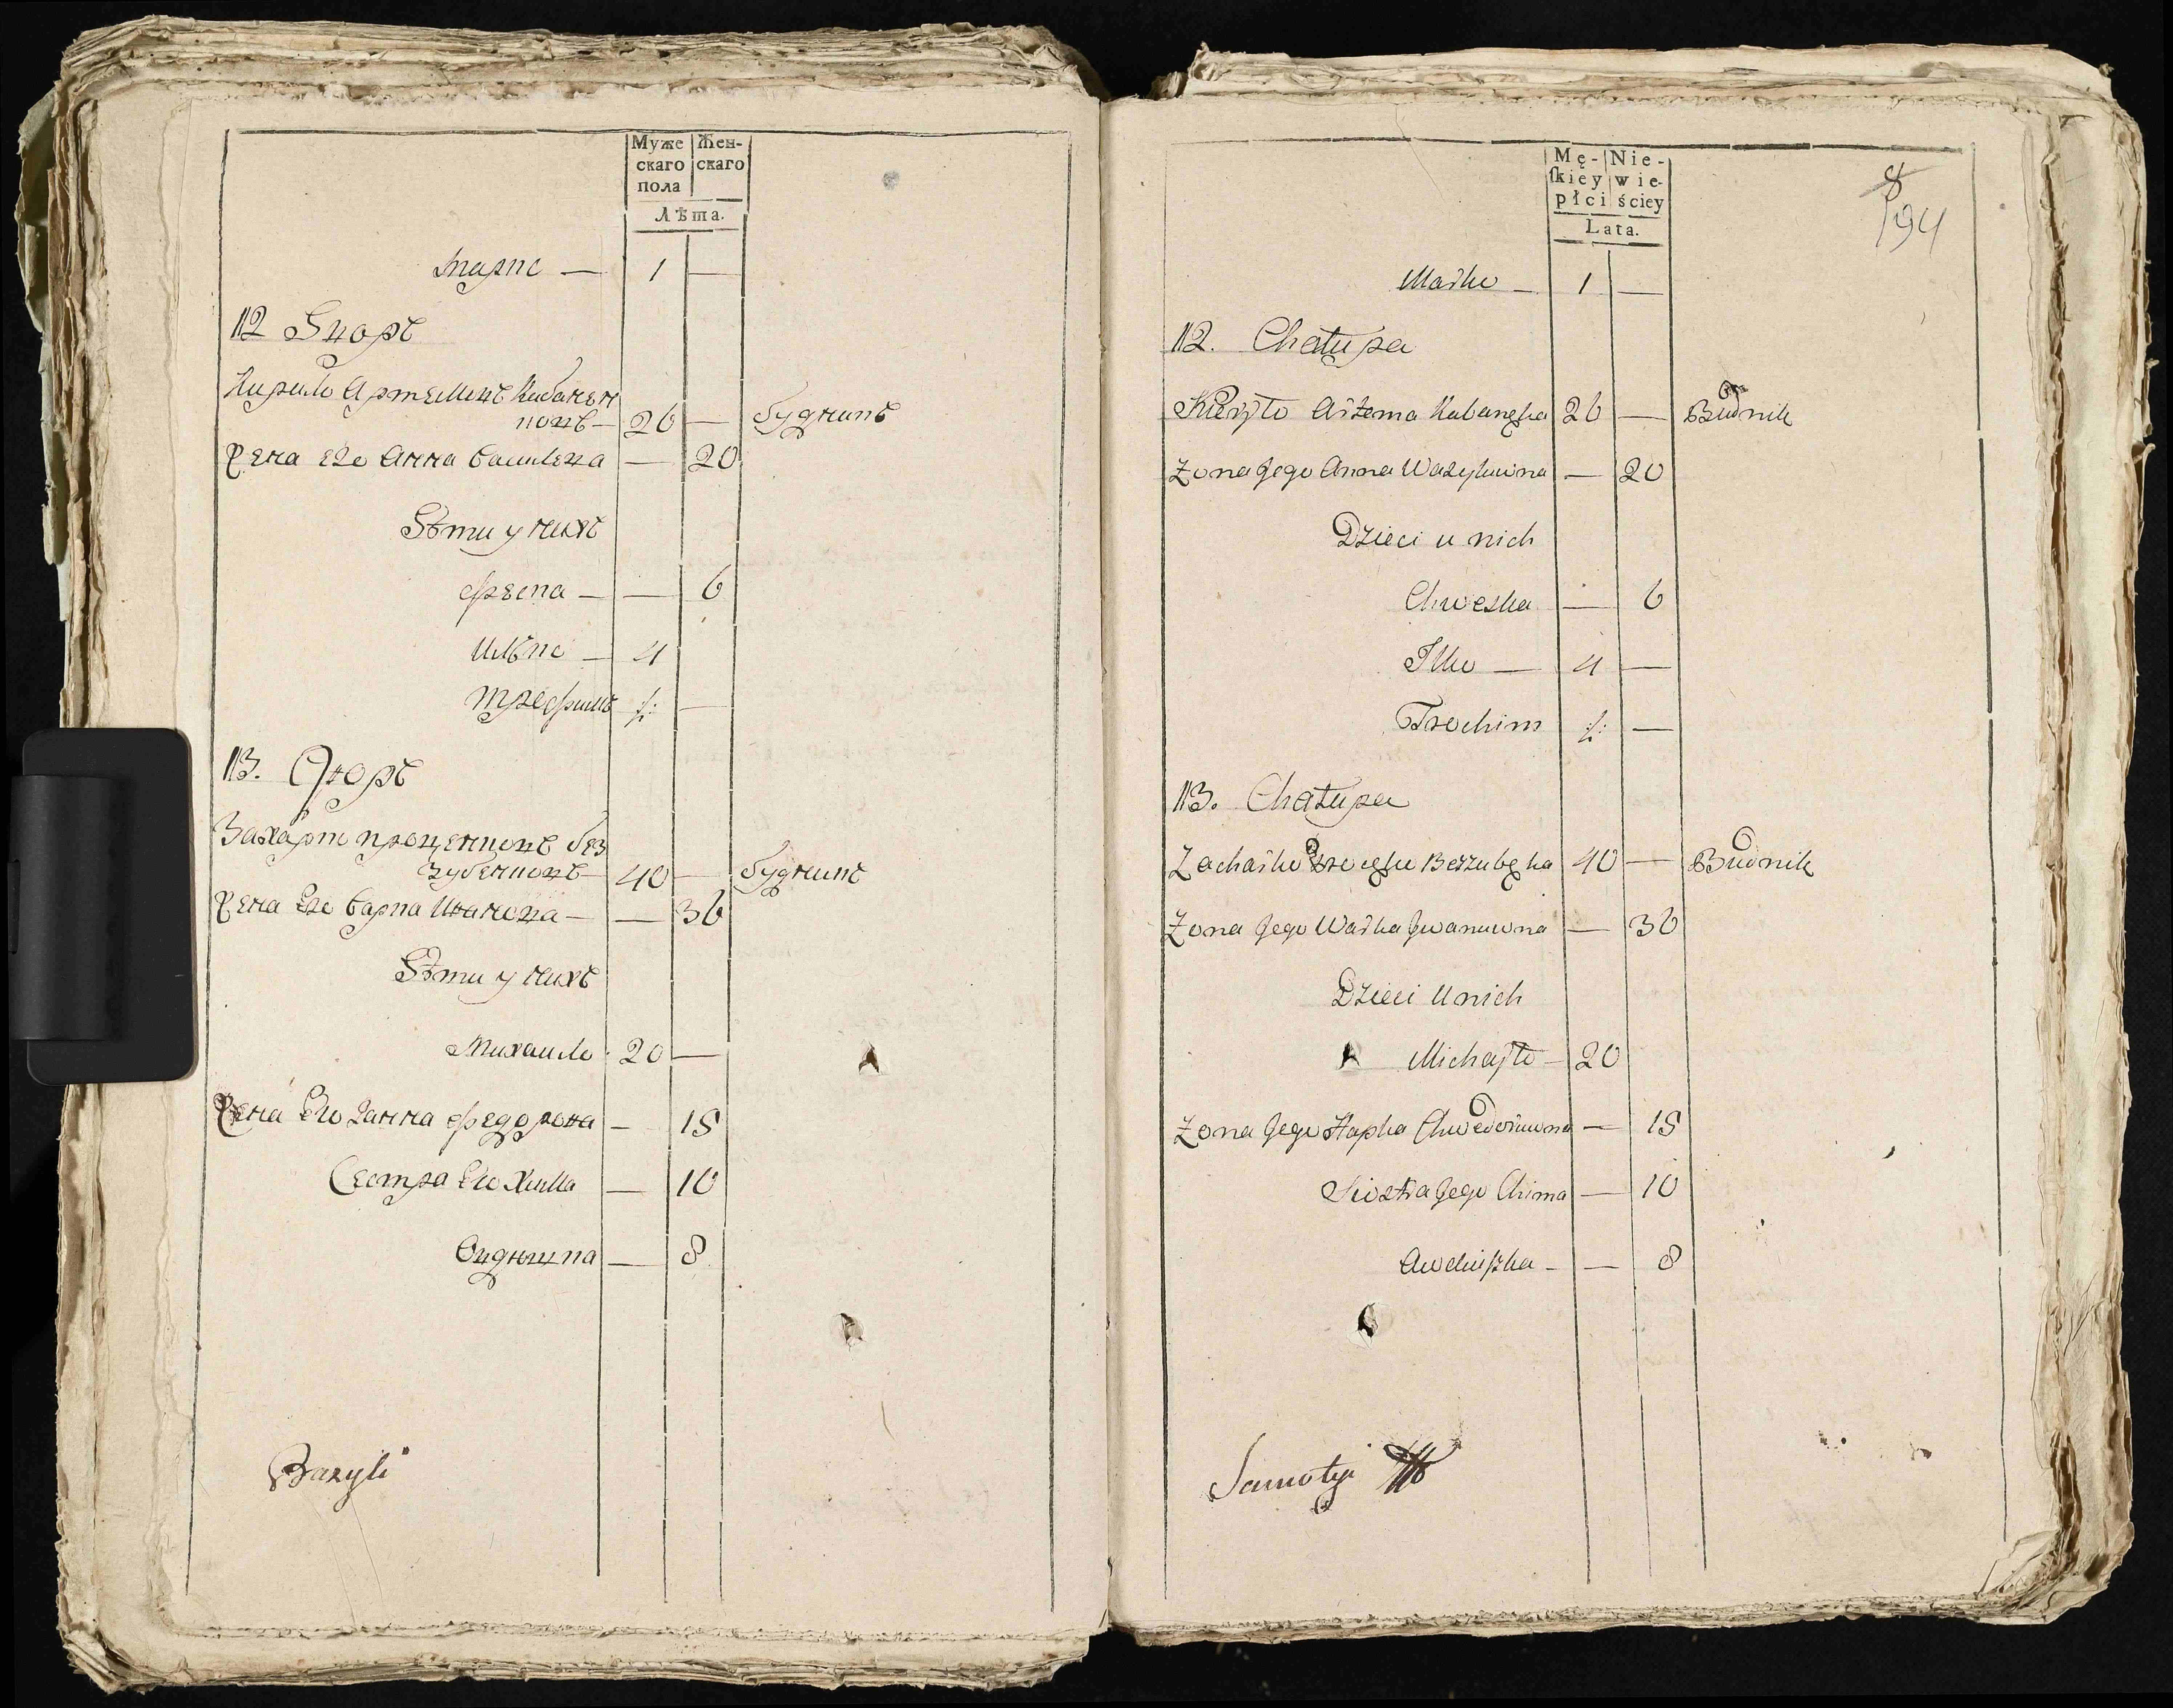 Муже
скаго
пола
Жен-
скаго
Лѣта.
Марко — 1 —
12 Дворъ
Кирило Артемовъ Кабанен
ковъ — 26 — будникъ
Жена его Анна Василева — 20
Дѣти у нихъ
Феска — — 6
Илько — 4
Трофимъ ½ —
13. Дворъ
Захарко Проценковъ без
зубенковъ — 40 — будникъ
Жена Его Варка Иванова — — 36
Дѣти у нихъ
Михаило 20 —
Жена Его Ганна Федорова — 18
Сестра Его Хима — 10
Овдюшка — 8
Bazyli
Mę-
ſkiey
płci
Nie-
wie-
ściey
Lata.
8
194
Marko — 1 —
12. Chałupa
Kiryło Artema Kabanęka 26 — Budnik
Zona Jego Anna Wasylowna — 20
Dzieci u nich
Chweska — 6
Ilko — 4 —
Trochim ½ —
13. Chałupa
Zacharko Procęko Bezzubęka 40 — Budnik
Zona Jego Warka Jwanowna — 36
Dzieci u nich
Michayło — 20
Zona Jego Hapka Chwedorowna — 18
Siostra Jego Chima — 10
Awdiuszka — — 8